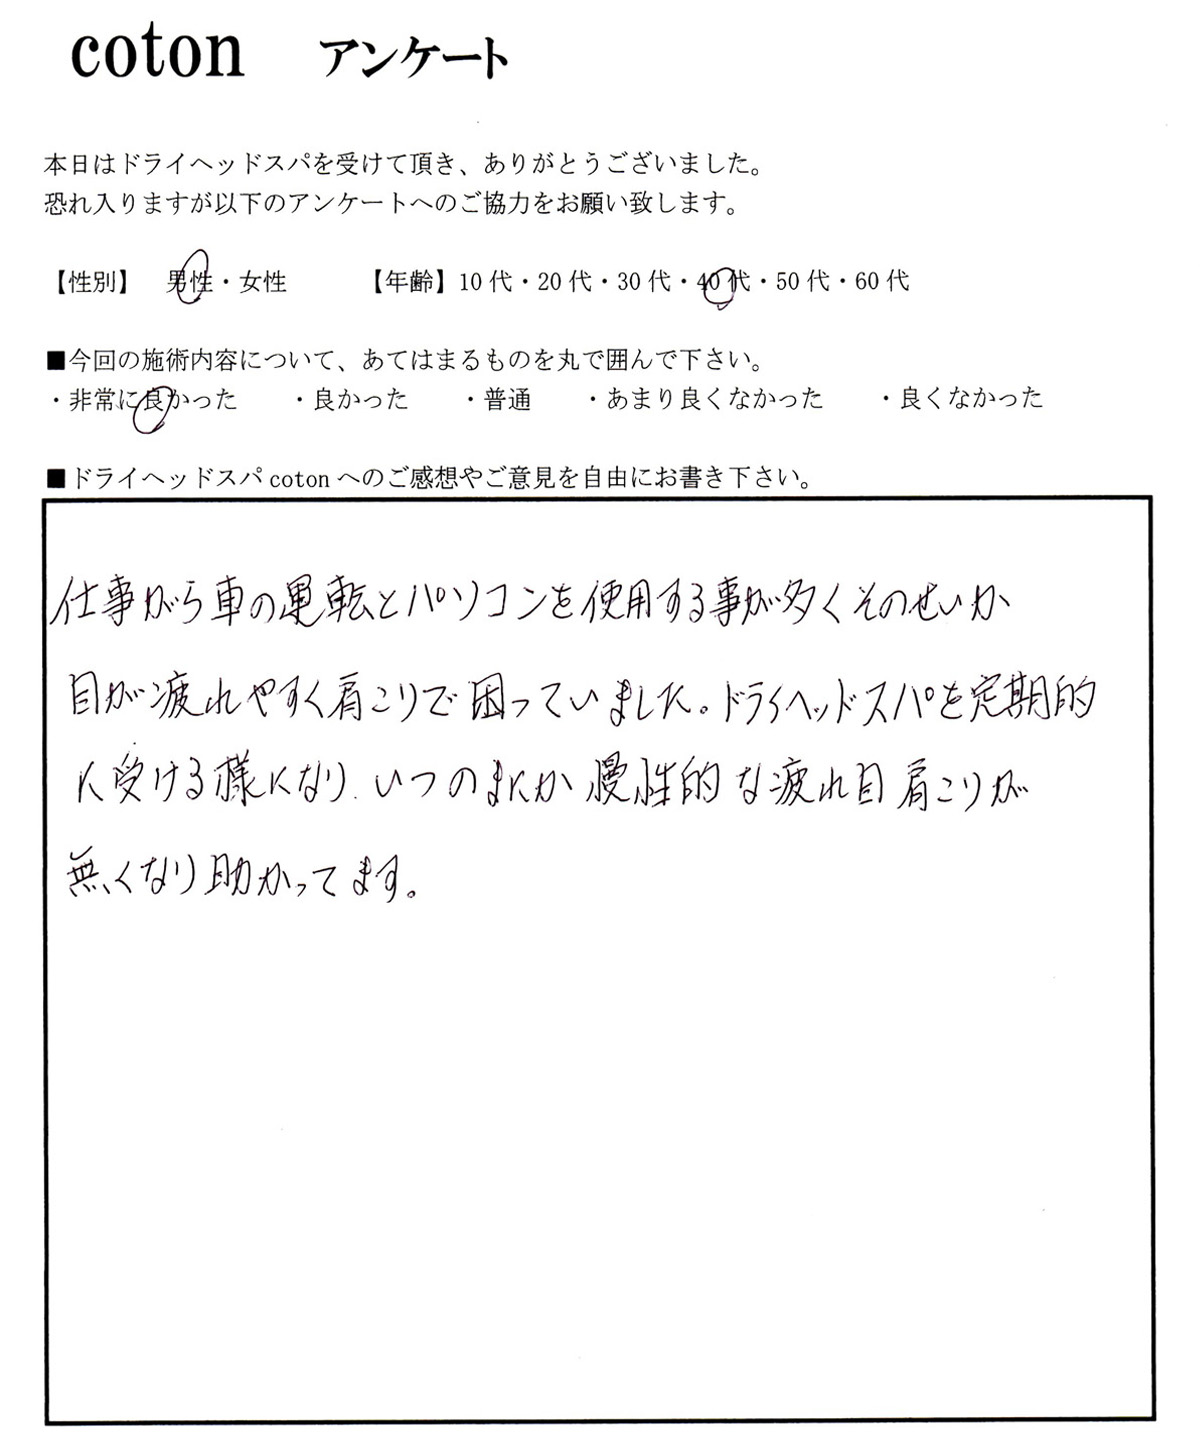 coton アンケート
本日はドライヘッドスパを受けて頂き、ありがとうございました。
恐れ入りますが以下のアンケートへのご協力をお願い致します。
【性別】 男性・女性 【年齢】10代・20代・30代・40代・50代・60代
■今回の施術内容について、あてはまるものを丸で囲んで下さい。
・非常に良かった ・良かった ・普通 ・あまり良くなかった ・良くなかった
■ドライヘッドスパcotonへのご感想やご意見を自由にお書き下さい。
仕事がら車の運転とパソコンを使用する事が多くそのせいか
目が疲れやすく肩こりで困っていました。ドライヘッドスパを定期的
に受ける様になり、いつのまにか慢性的な疲れ目肩こりが
無くなり助かってます。